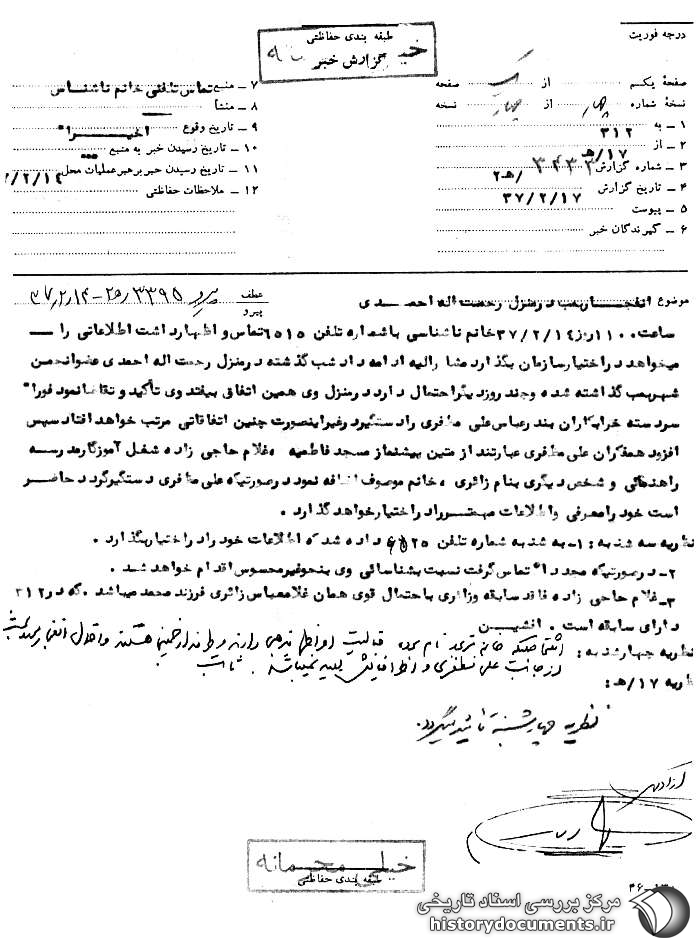 درجه فوریت
طبقه بندی حفاظتی
گزارش خبر
صفحهٔ یکم از یک صفحه
نسخهٔ شماره چهار از چهار نسخه
۱ ـ به ۳۱۲
۲ ـ از ۱۷/هـ
۳ ـ شماره گزارش ۳۴۳۳/هـ۲
۴ ـ تاریخ گزارش ۳۷/۲/۱۷
۵ ـ پیوست
۶ ـ گیرندگان خبر
۷ ـ منبع تماس تلفنی خانم ناشناس
۸ ـ منشأ
۹ ـ تاریخ وقوع اخیرا"
۱۰ ـ تاریخ رسیدن خبر به منبع
۱۱ ـ تاریخ رسیدن خبر برهبر عملیات محل
۱۲ ـ ملاحظات حفاظتی
موضوع انفجار بمب در منزل رحمت اله احمدی
عطف پیرو پیرو ۳۳۹۵
ساعت ۱۱۰۰ روز ۳۷/۲/۱٤ خانم ناشناسی با شماره تلفن ۶۵۱۵ تماس و اظهار داشت اطلاعاتی را
میخواهد در اختیار سازمان بگذارد مشارالیه ادامه داد شب گذشته در منزل رحمت اله احمدی عضو انجمن
شهر بمب گذاشته شده و چند روز دیگر احتمال دارد در منزل وی همین اتفاق بیفتد وی تأکید و تقاضا نمود فورا"
سردسته خرابکاران بندرعباس علی مظفری را دستگیر در غیر اینصورت چنین اتفاقاتی مرتب خواهد افتاد سپس
افزود همفکران علی مظفری عبارتند از متین پیشنماز مسجد فاطمیه ، غلام حاجی زاده شغل آموزگار مدرسه
راهنمائی و شخص دیگری بنام زائری ، خانم موصوف اضافه نمود در صورتیکه علی مظفری دستگیر گردد حاضر
است خود را معرفی و اطلاعات مهمتر را در اختیار خواهد گذارد .
نظریه سه شنبه : ۱ـ به شنبه شماره تلفن داده شد که اطلاعات خود را در اختیار بگذارد .
۲ـ در صورتیکه مجددا" تماس گرفت نسبت بشناسائی وی بنحو غیر محسوس اقدام خواهد شد .
۳ـ غلام حاجی زاده فاقد سابقه و زائری باحتمال قوی همان غلامعباس زائری فرزند محمد میباشد . که در ۳۱۲
دارای سابقه است . افشین
نظریه چهارشنبه : اشخاصیکه خانم نام برده فعالیت و طرفدار خمینی هستند و
از جانب علی مظفری و اطرافیانش بعید نمیباشد .
نظریه ۱۷/هـ :
نظریه چهارشنبه تائید میگردد .
خیلی محرمانه
طبقه بندی حفاظتی
مرکز بررسی اسناد تاریخی
historydocuments.ir